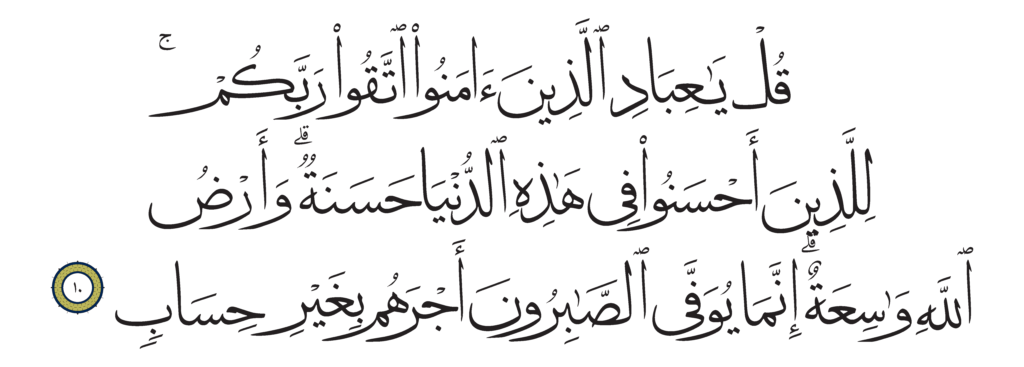 قُلْ يَـٰعِبَادِ ٱلَّذِينَ ءَامَنُوا۟ ٱتَّقُوا۟ رَبَّكُمْ ۚ
لِلَّذِينَ أَحْسَنُوا۟ فِى هَـٰذِهِ ٱلدُّنْيَا حَسَنَةٌ ۗ وَأَرْضُ
ٱللَّهِ وَٰسِعَةٌ ۗ إِنَّمَا يُوَفَّى ٱلصَّـٰبِرُونَ أَجْرَهُم بِغَيْرِ حِسَابٍ ١٠